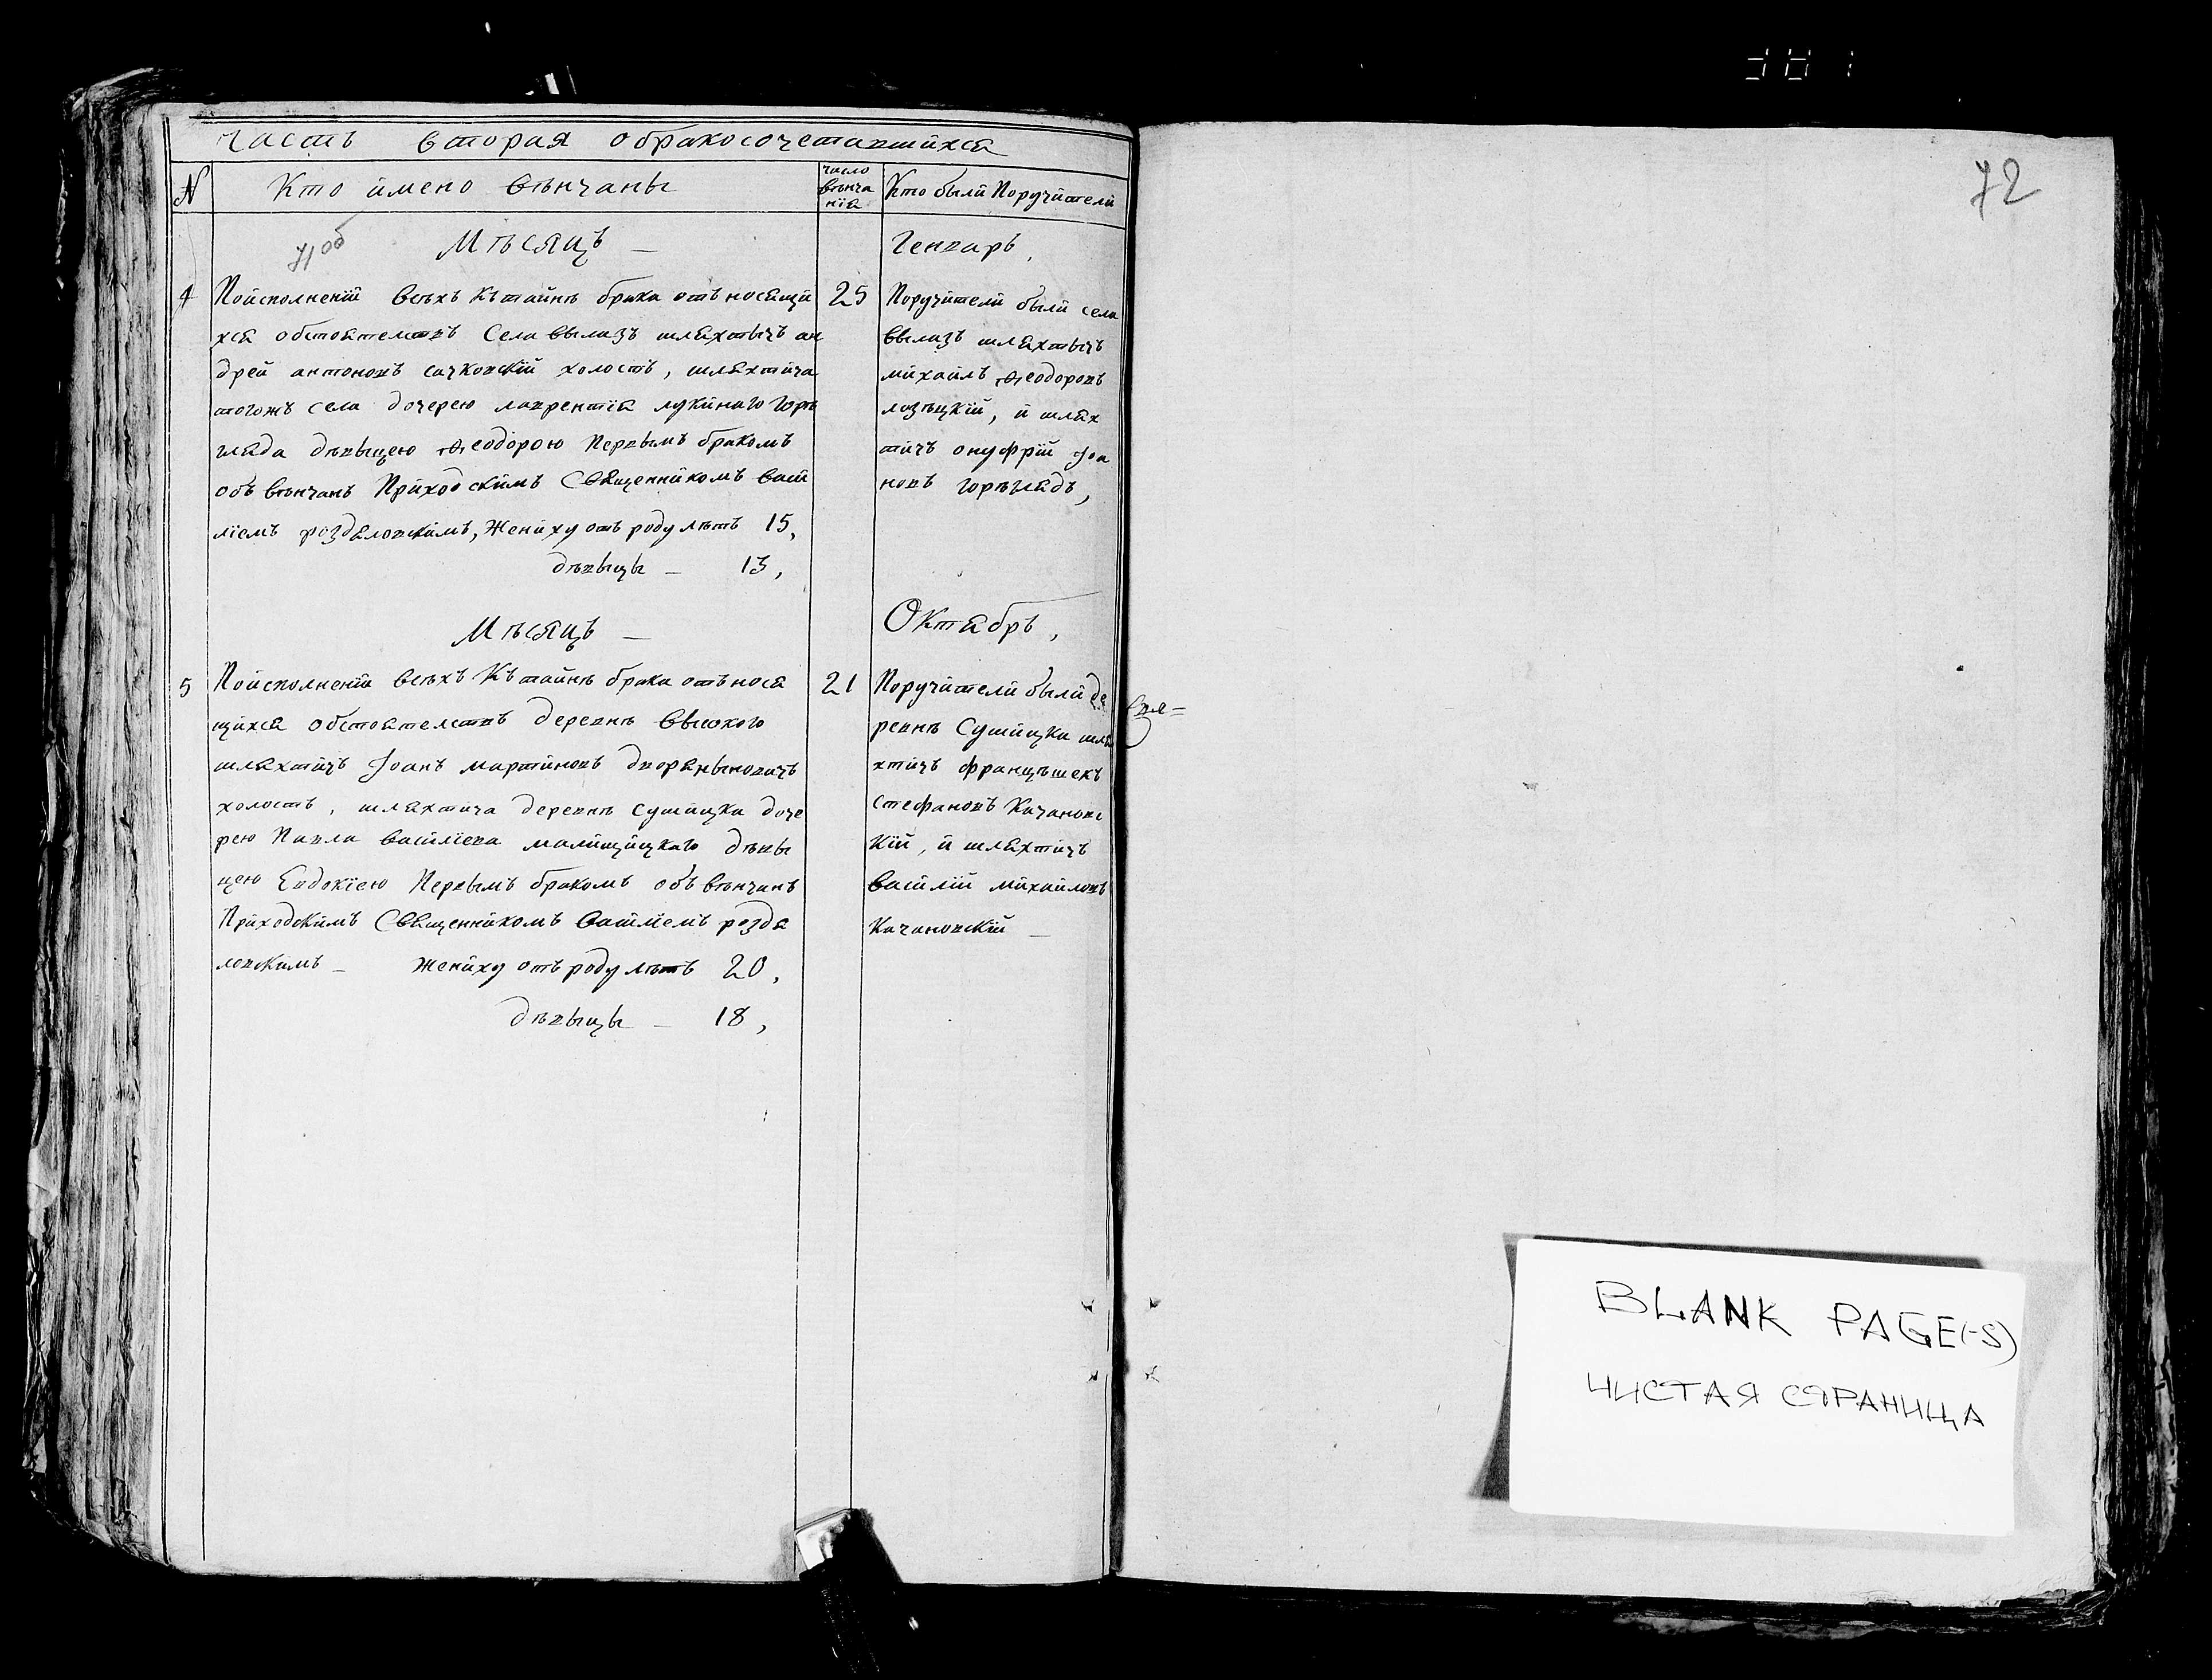 часть вторая обракосочетавшихся
N Кто имено вѣнчаны
число вѣнча нія
Кто были Поручители
71 об
Мѣсяцъ — Генварь,
4 Поисполненіи всѣхъ Кътайнѣ брака отъносящи
хся обстоятелствъ Села вылазъ шляхтычъ ан
дрей антоновъ сачковскій холостъ, шляхтича
тогожъ села дочерею лаврентія лукинаго горе
гляда дѣвыцею Ѳеодорою Первымъ бракомъ
объвѣнчанъ Приходскимъ Священникомъ васи
ліемъ роздяловскимъ, Жениху отъ роду лѣтъ 15,
дѣвыцы — 13,
25
Поручители были села
вылазъ шляхтычъ
михаилъ Ѳеодоровъ
лозѣцкій, и шлях
тичъ онуфрій Іоа
новъ горегладъ,
Мѣсяцъ — Октябрь,
5 Поисполненіи всѣхъ Къ тайнѣ брака отъ нося
щихся обстоятелствъ деревнѣ высокого
шляхтичъ Іоанъ мартиновъ дворяныновичъ
холостъ, шляхтича деревнѣ сушицка доче
рею Павла василіева малищицкаго дѣвы
цею Евдокіею Первымъ бракомъ объ вѣнчанъ
Приходскимъ Священникомъ василіемъ роздя
ловскимъ — Жениху отъ роду лѣтъ 20,
дѣвыцы — 18,
21
Поручители были де
ревнѣ Сушицка шля
хтичъ францѣшекъ
стефановъ Качановс
кій, и шляхтичъ
василій михайловъ
Качановскій —
72
BLANK PAGE(-S)
ЧИСТАЯ СТРАНИЦА